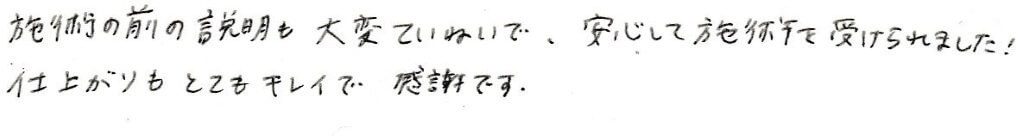 施術の前の説明も大変ていねいで、安心して施術を受けられました！
仕上がりもとてもキレイで感謝です.